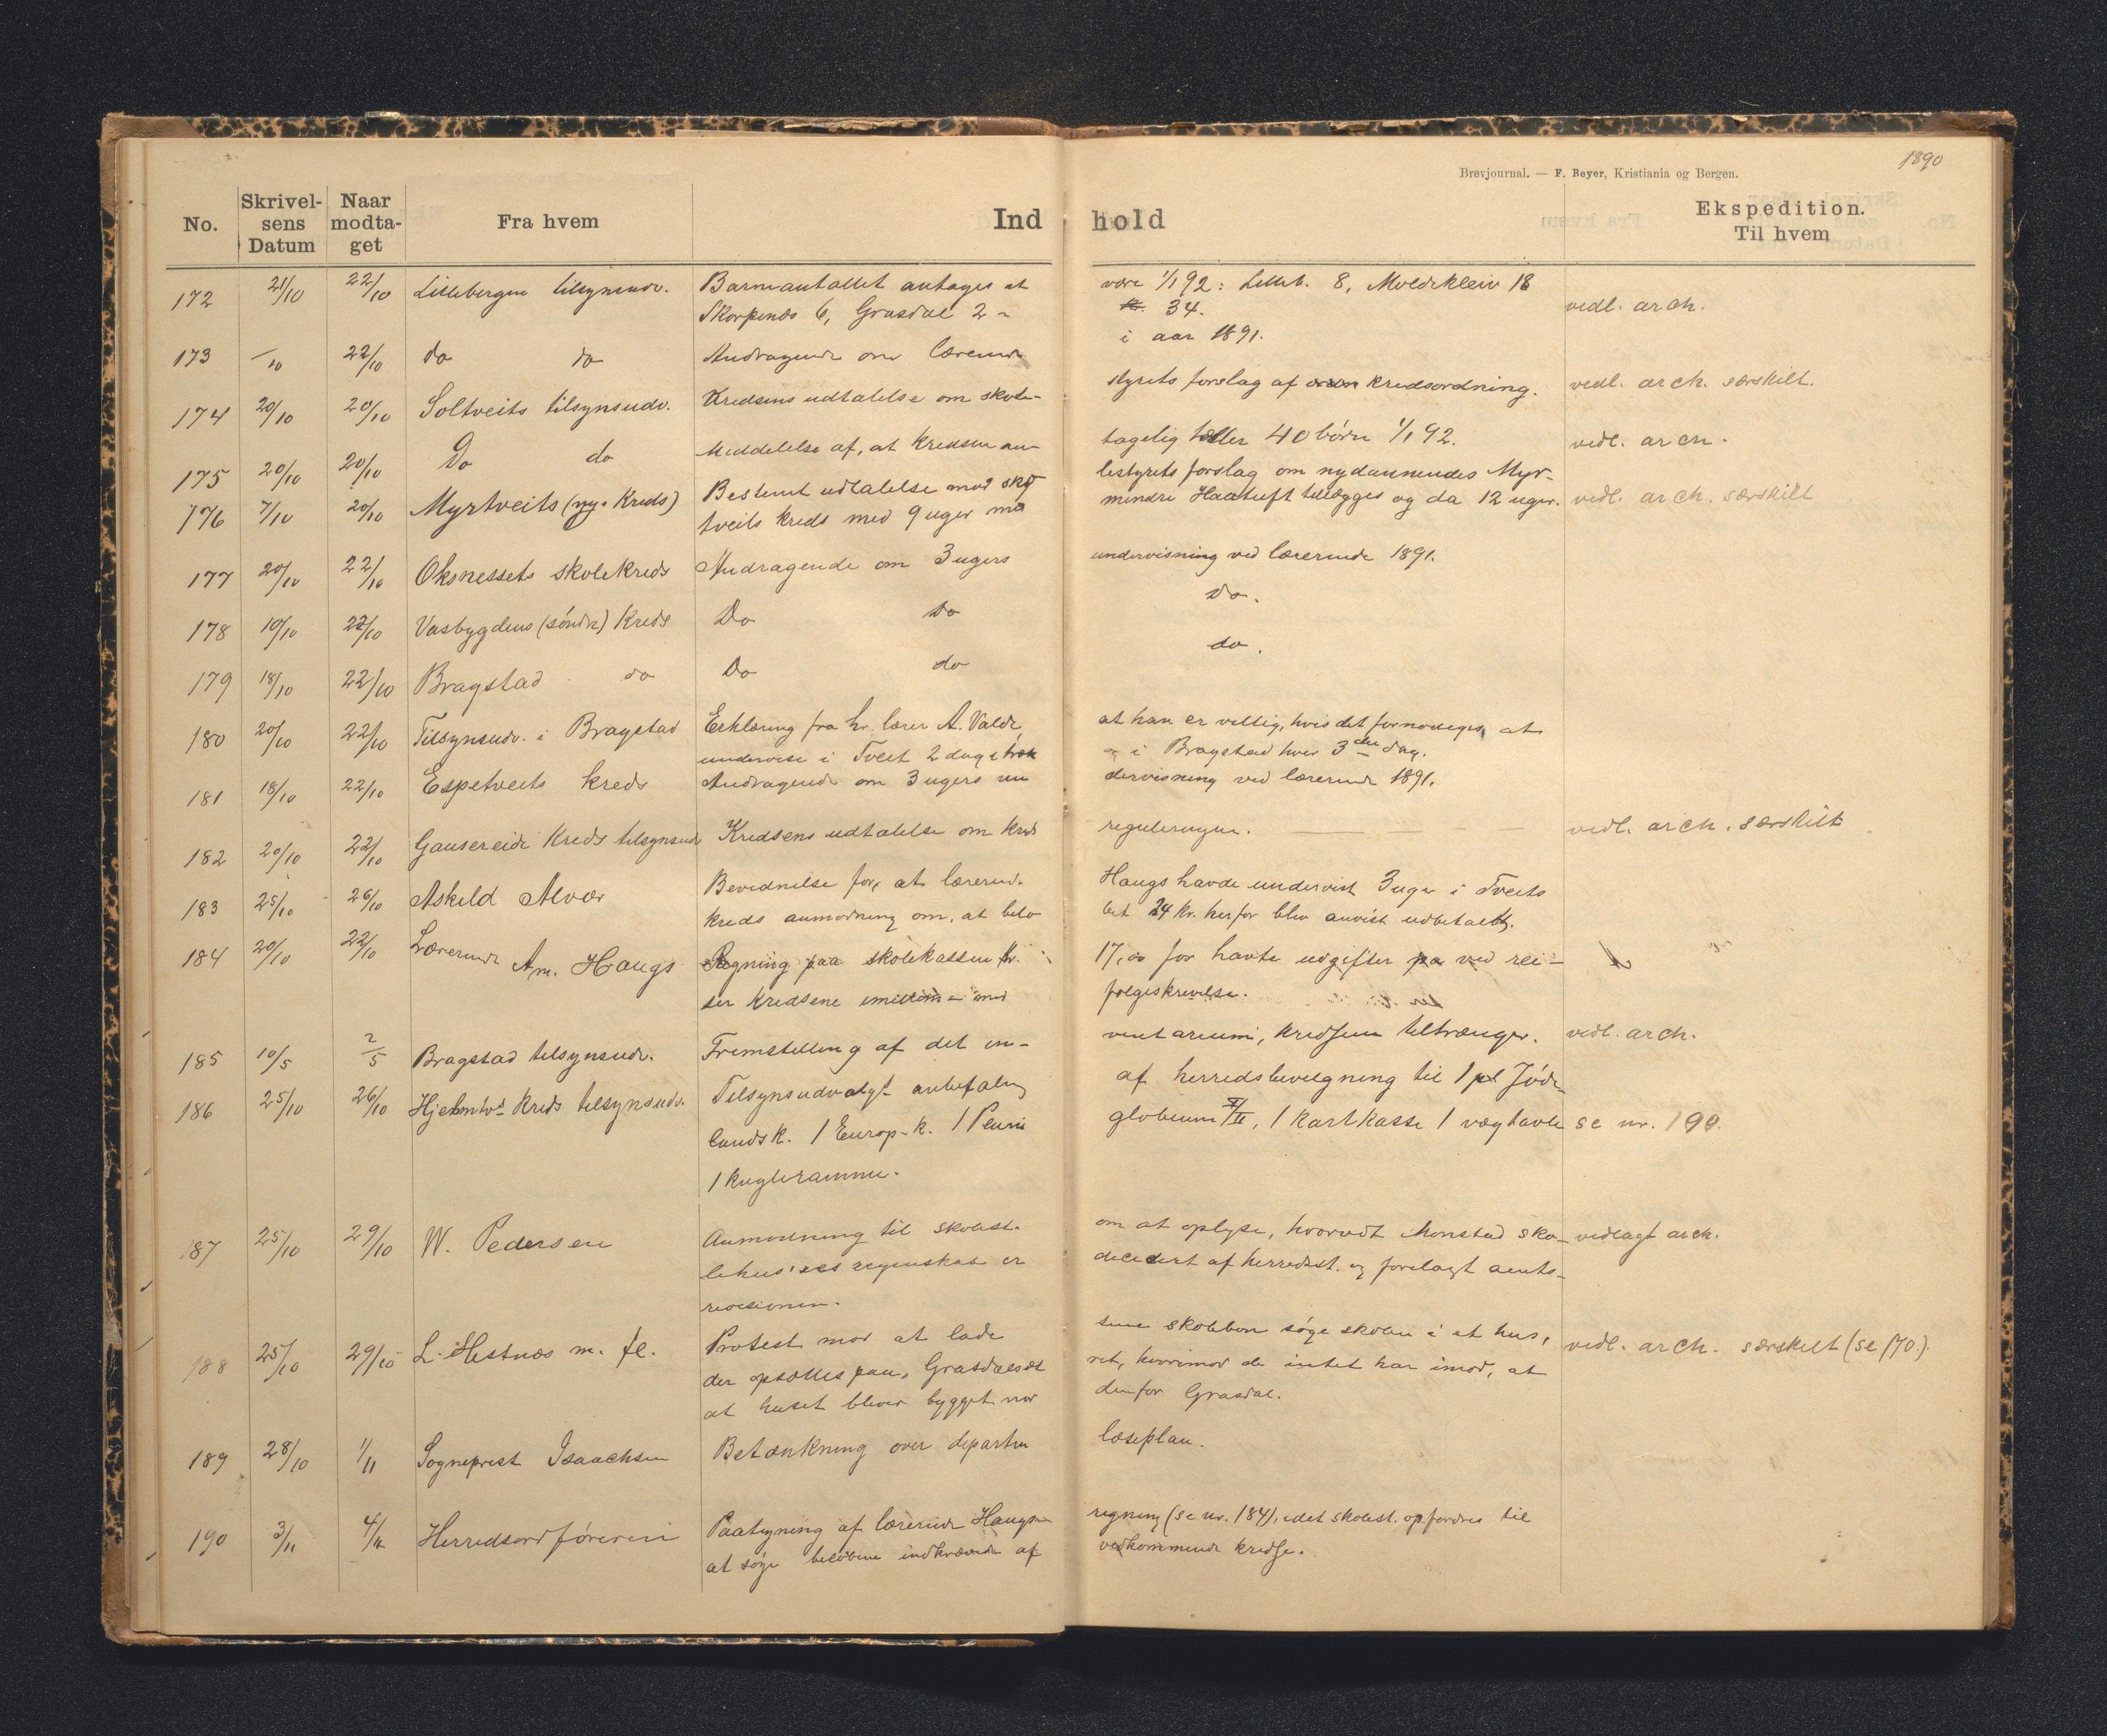 1890
Brevjournal. — F. Beyer, Kristiania og Bergen.
No. Skrivelsens Datum Naar modtaget Fra hvem Indhold Ekspedition. Til hvem
172 21/10 22/10 Lillebergen tilsynsudv. Barneantallet antages at være 1/1 92: Lilleb. 8, Moldekleiv 18
Skorpenæs 6, Grasdal 2 = 34. vedl. arch.
173 /10 22/10 do do Andragende om lærerinde i aar 1891.
174 20/10 20/10 Soltveits tilsynsudv. Kredsens udtalelse om skole-
styrets forslag af kredsordning. vedl. arch. særskilt.
175 20/10 20/10 Do do Meddelelse af, at kredsen an-
tagelig tæller 40 børn 1/1 92. vedl. arch.
176 7/10 20/10 Myrtveits (ny. Kreds) Bestemt udtalelse mod sko
lestyrets forslag om nydannendes Myr-
tveits kreds med 9 uger mindre Haatuft tillægges og da 12 uger. vedl. arch. særskilt
177 20/10 22/10 Oksnessets skolekreds Andragende om 3 ugers undervisning ved lærerinde 1891.
178 10/10 22/10 Vasbygdens (søndre) Kreds Do Do Do.
179 18/10 22/10 Bragstad do Do do do.
180 20/10 22/10 Tilsynsudv. i Bragstad Erklæring fra hr. lærer A. Valde, at han er villig, hvis det fornødiges, at
undervise i Tveit 2 dage i Bragstad hver 3die dag.
181 18/10 22/10 Espetveits kreds Andragende om 3 ugers un
dervisning ved lærerinde 1891.
182 20/10 22/10 Gausereide Kreds tilsynsudv Kredsens udtalelse om kreds
reguleringen. vedl. arch. særskilt
183 25/10 26/10 Askild Alvær Bevidnelse for, at lærerind. Haugs havde undervist 3 uger i Tveits
kreds anmodning om, at belø
bet 24 kr. herfor blev anvist udbetalt.
184 20/10 22/10 Lærerinde Am. Haugs Regning paa skolekassen kr. 17,00 for havte udgifter ved rei-
ser kredsene imillem – med følgeskrivelse.
185 10/5 2/5 Bragstad tilsynsudv. Fremstilling af det in-
ventarium, kredsen tiltrænger. vedl. arch.
186 25/10 26/10 Hjelmtvt kreds tilsynsudv. Tilsynsudvalgt anbefaling af herredsbevilgning til 1 pl Jøde
landsk. 1 Europ-k. 1 globeum, 1 kartkasse 1 vægtavle se nr. 190.
1 kugleramme.
187 25/10 29/10 W. Pedersen Anmodning til skolest. om at oplyse, hvorvidt Monstad sko-
lehus'ses regnskab er decidert af herredsst. og forelagt amts-
revisionen. vedlagt arch.
188 25/10 29/10 L. Hestnæs m. fl. Protest mod at lade sine skolebørn søge skolen i et hus,
der opsættes paa Grasdalsæt
ret, hvorimod de intet har imod, at
at huset bliver bygget nor
denfor Grasdal. vedl. arch. særskilt (se 170.)
189 28/10 1/11 Sogneprest Isaachsen Betænkning over departm læseplan.
190 3/11 4/11 Herredsordføreren Paategning af lærerinde Haugs regning (se nr. 184), idet skolest. opfordres til
at søge beløbene indkrævede af vedkommende kredse.